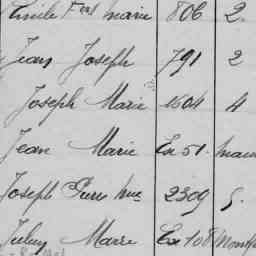 Emile Fçois Marie 806 2.
Jean Joseph 791 2
Joseph Marie 1604 4
Jean Marie Ex 51.
Joseph Pierre Marie 2309 5.
Julien Marie Ex 108